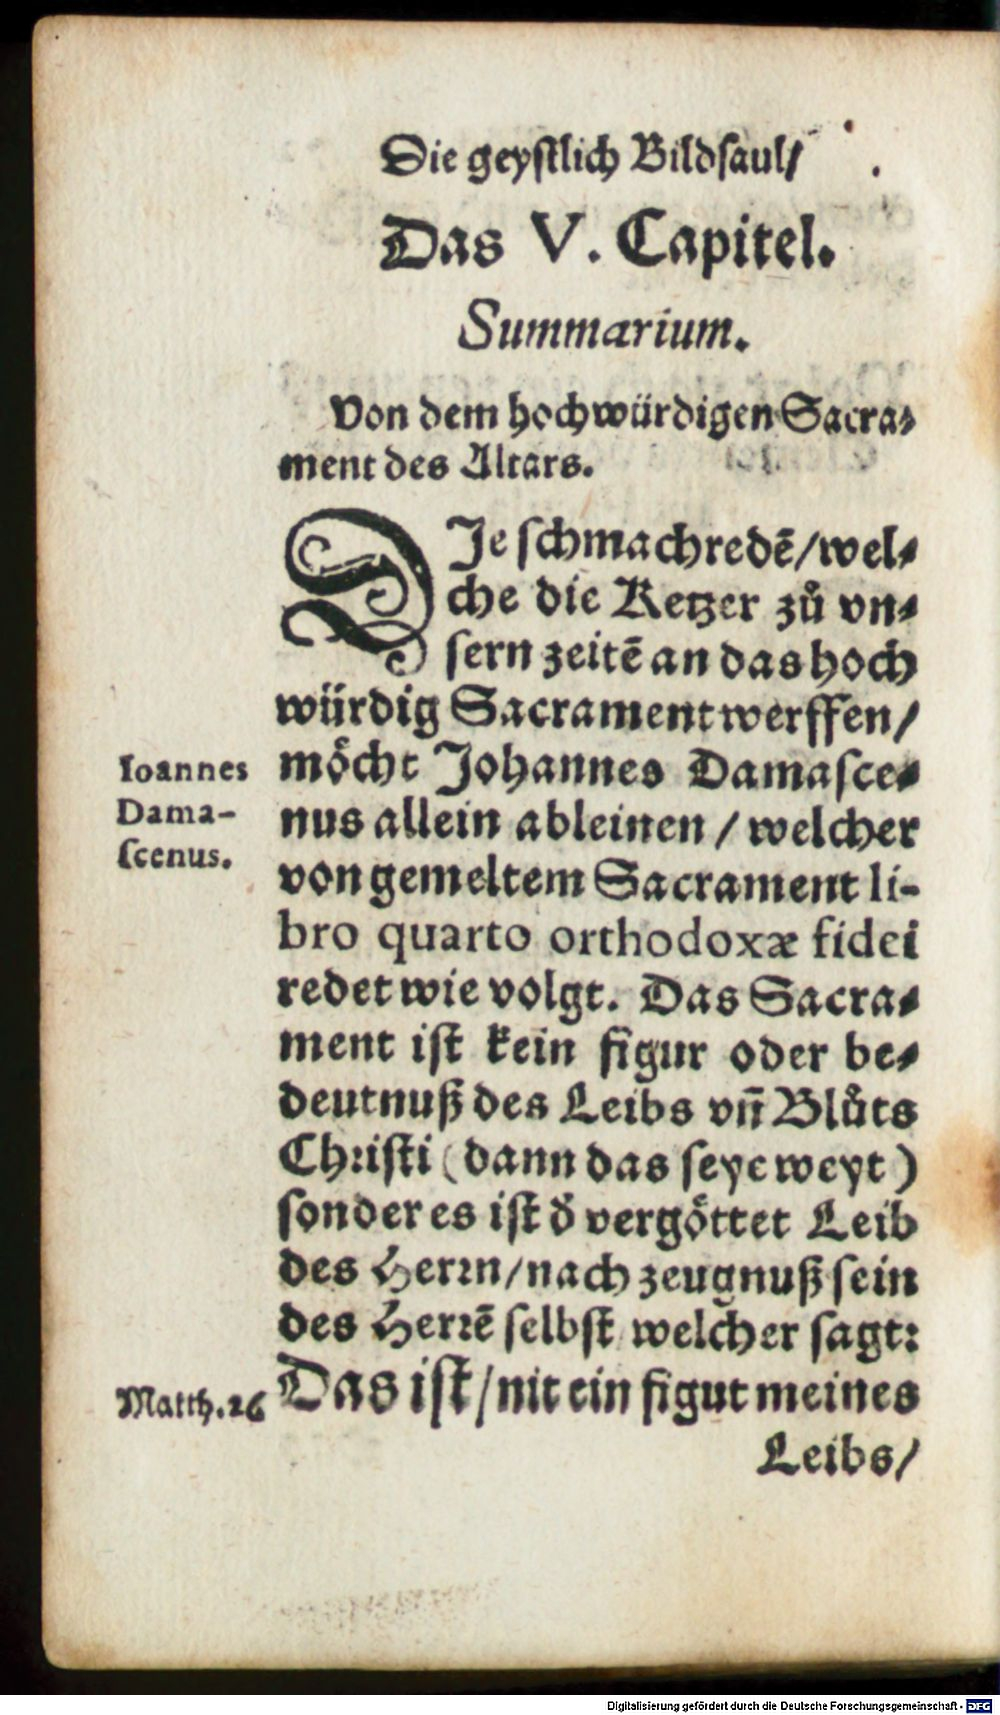 Die geystlich Bildsaul/
Das V. Capitel.
Summarium.
Von dem hochwürdigen Sacra-
ment des Altars.
DIe schmachredē/wel-
che die Ketzer zů vn-
sern zeitē an das hoch
würdig Sacrament werffen/
möcht Johannes Damasce-
nus allein ableinen / welcher
von gemeltem Sacrament li-
bro quarto orthodoxæ fidei
redet wie volgt. Das Sacra-
ment ist kein figur oder be-
deutnuß des Leibs vñ Blůts
Christi (dann das seye weyt)
sonder es ist d̄ vergöttet Leib
des Herrn/nach zeugnuß sein
des Herrē selbst welcher sagt:
Das ist/nit ein figut meines
Leibs/
Ioannes
Dama-
scenus.
Matth.26
Digitalisierung gefördert durch die Deutsche Forschungsgemeinschaft - DFG